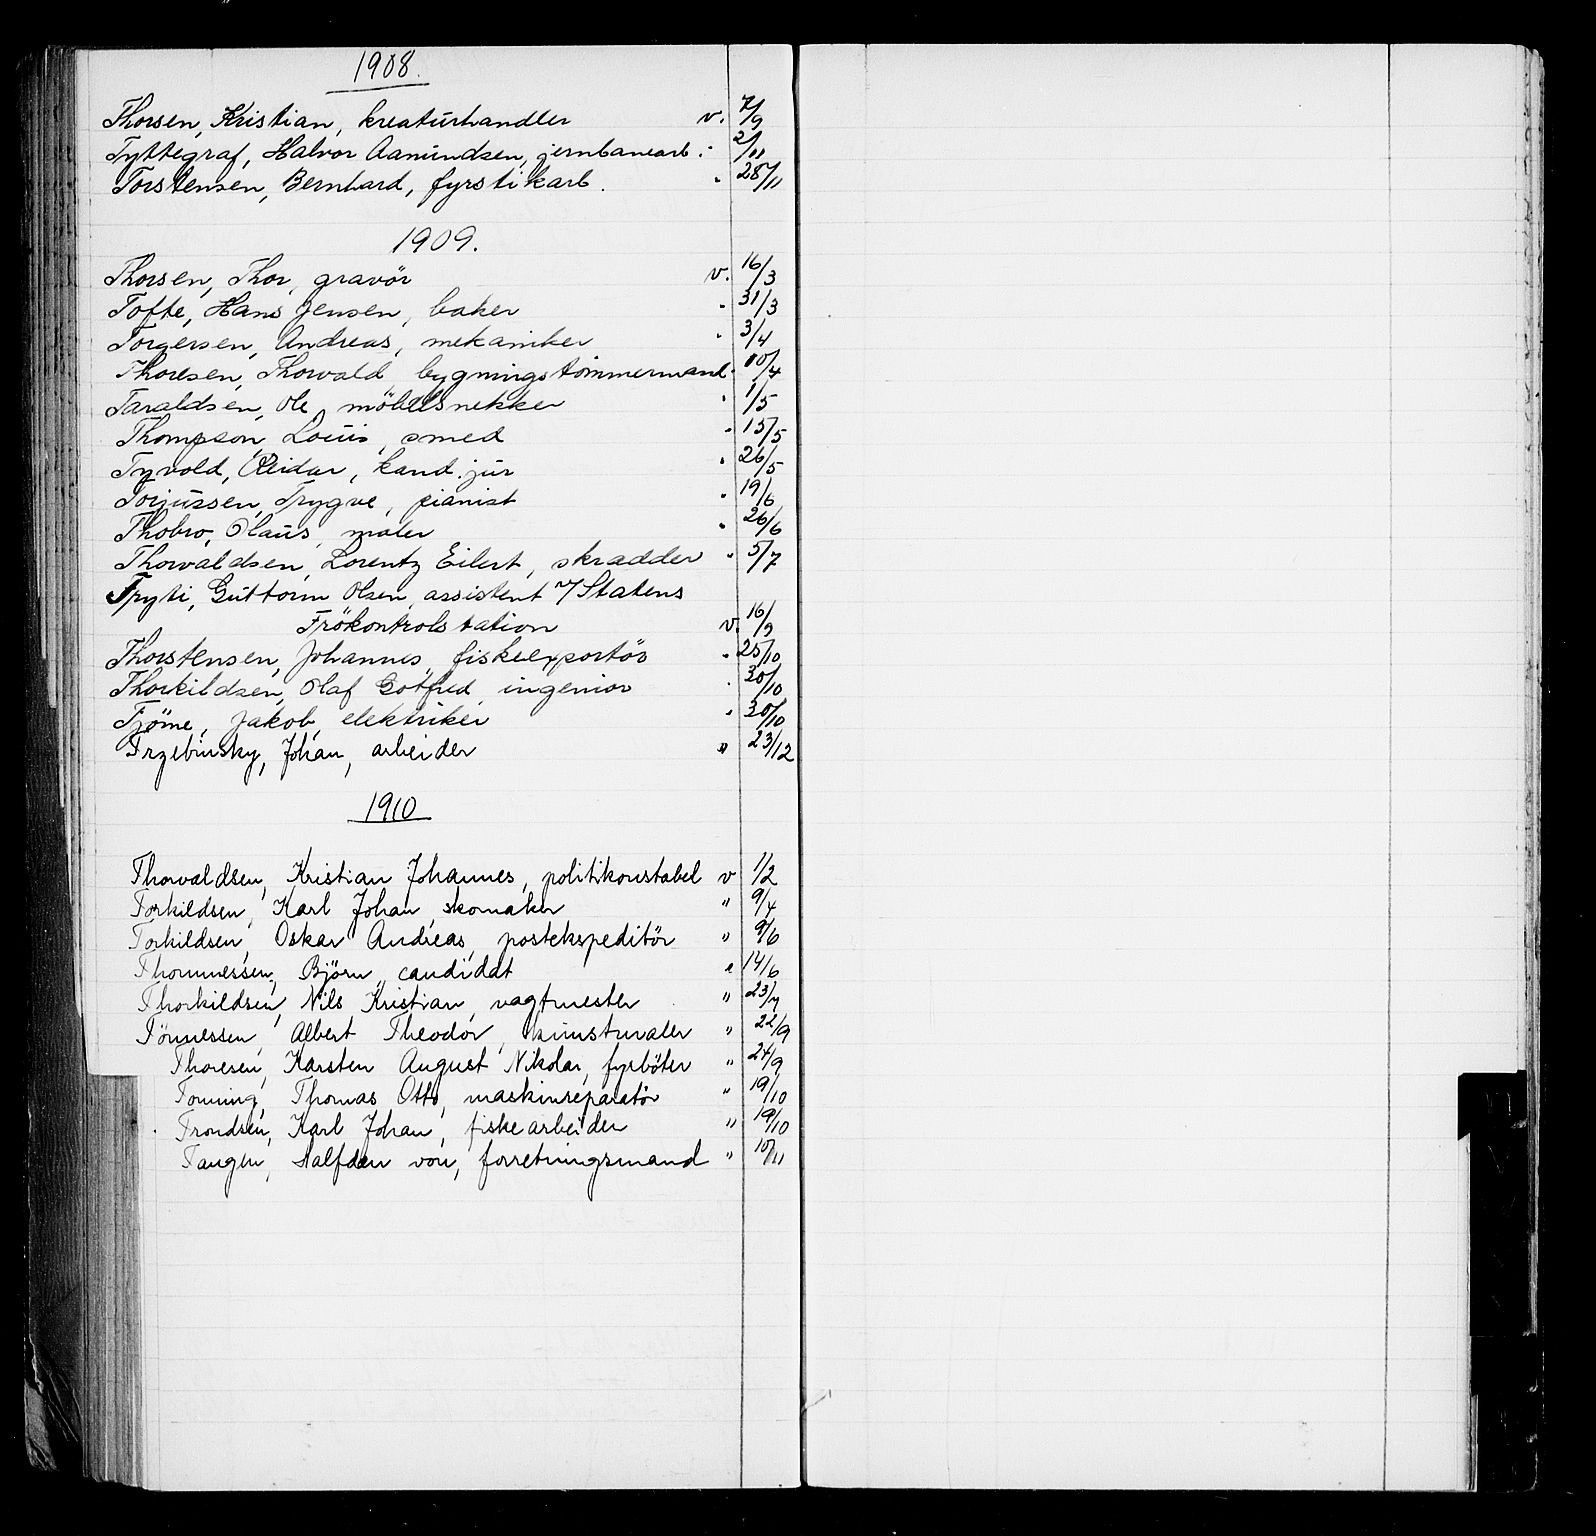 1908.
Thorsen, Kristian, kreaturhandler v. 7/9
Tyttegraf, Halvor Aamundsen, jernbanearb. " 2/11
Torstensen, Bernhard, fyrstikarb. " 28/11
1909.
Thorsen, Thor, gravör v. 16/3
Tofte, Hans Jensen, baker " 31/3
Torgersen, Andreas, mekaniker " 3/4
Thoresen, Thorvald, bygningstömmermand " 10/4
Taraldsen, Ole, möbelsnekker " 1/5
Thompson, Louis, smed " 15/5
Tyvold, Reidar, kand. jur " 26/5
Torjussen, Trygve, pianist " 19/6
Thobro, Olaus, maler " 26/6
Thorvaldsen, Lorentz Eilert, skradder " 5/7
Tpyti, Guttorm Olsen, assistent v/ Statens
Frökontrolstation v. 16/9
Thorstensen, Johannes, fiskeexportör " 25/10
Thorkildsen, Olaf Gotfred, ingeniör " 30/10
Tjöme, Jakob, elektriker " 30/10
Trzebinsky, Johan, arbeider " 23/12
1910
Thorvaldsen, Kristian Johannes, politikonstabel v 1/2
Torkildsen, Karl Johan, skomaker " 9/4
Torkildsen, Oskar Andreas, postekspeditör " 9/6
Thommessen, Björn, candidat " 14/6
Thorkildsen, Nils Kristian, vagtmester " 23/7
Tönnessen, Albert Theodor, kunstmaler " 22/9
Thoresen, Karsten August Nikolai, fyrböter " 24/9
Tonning, Thomas Otto, maskinreparatör " 19/10
Trondsen, Karl Johan, fiskearbeider " 19/10
Tangen, Halfdan von, forretningsmand " 10/11